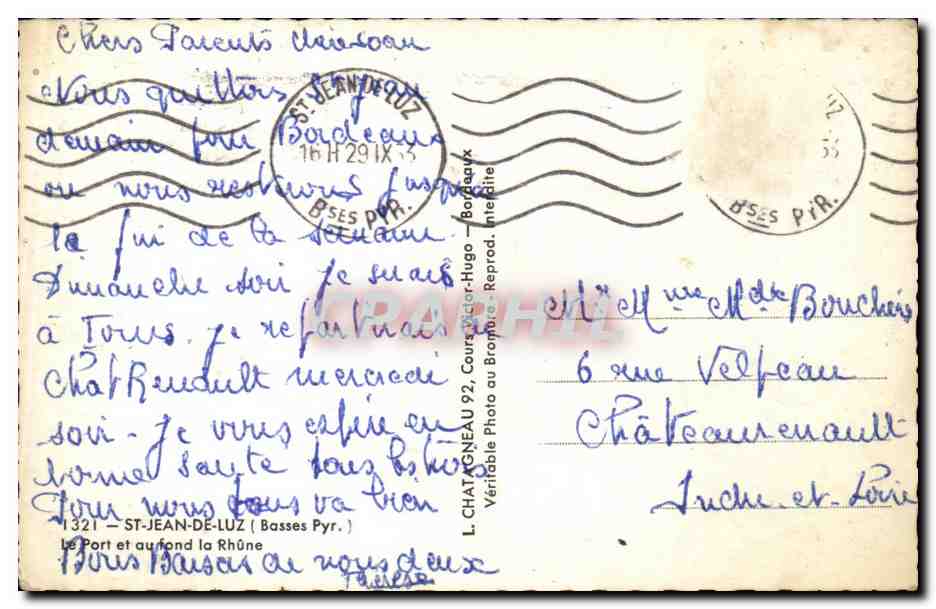 Chers Parents
Nous quittons St Jean
demain pour Bordeaux
ou nous resterons jusqu'a
la fin de la semaine
Dimanche soir je serais
à Tours. je repartirais de
Chat Renault mercredi
soir - Je vous espère en
bonne santé tous les trois
Pour nous tous va bien
Bons Baisers de nous deux
Thérèse
1321 — ST-JEAN-DE-LUZ (Basses Pyr.)
Le Port et au fond la Rhûne
ST JEAN-DE-LUZ
16H 29 IX 53
BSES PYR.
L. CHATAGNEAU 92, Cours Victor-Hugo — Bordeaux
Véritable Photo au Bromure - Reprod. Interdite
UZ
53
BSES PYR.
CPAPHIL
Mr Mme Mdle
6 rue Velpeau
Châteaurenault
Indre-et-Loire